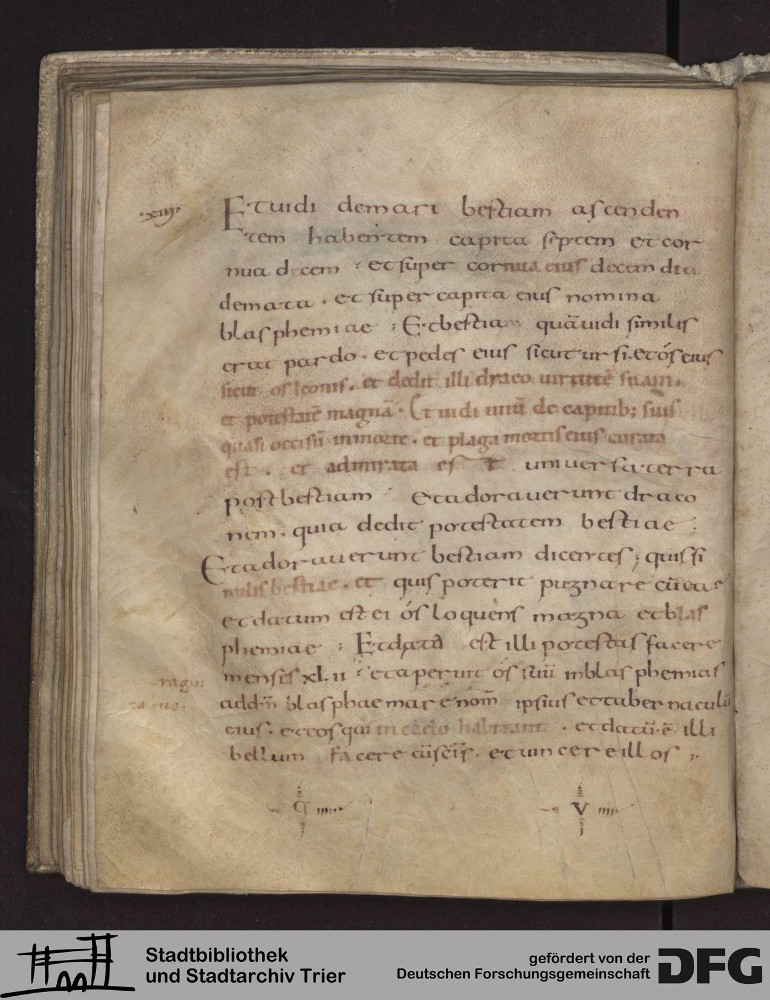 xiii
Et uidi de mari bestiam ascenden
tem habentem capita septem et cor
nua decem · et super cornua eius decem dia
demata · et super capita eius nomina
blasphemiae ; Et bestia quā uidi similis
erat pardo · et pedes eius sicut ursi · et ós eius
sicut os leonis · et dedit illi draco uirtutē suam ·
et potestatē magnā · Et uidi unū de capitib; suis
quasi occisū in morte · et plaga mortis eius curata
est · et admirata est uniuersa terra
post bestiam Et adorauerunt draco
nem · quia dedit potestatem bestiae :
Et adorauerunt bestiam dicentes ; quis si
milis bestiae · et quis poterit pugnare cū ea
et datum est ei ós loquens magna et blas
phemiae ; Et data est illi potestas facere
menses xl.ii · et aperuit ós suū in blasphemias
ad dm̄ blasphaemare nom̄ ipsius et tabernaculū
eius · et eos qui in caelo habitant · et datū · ē illi
bellum facere cū sc̄īs · et uincere illos ;
q iiii
V iiii
Stadtbibliothek
und Stadtarchiv Trier
gefördert von der
Deutschen Forschungsgemeinschaft
DFG